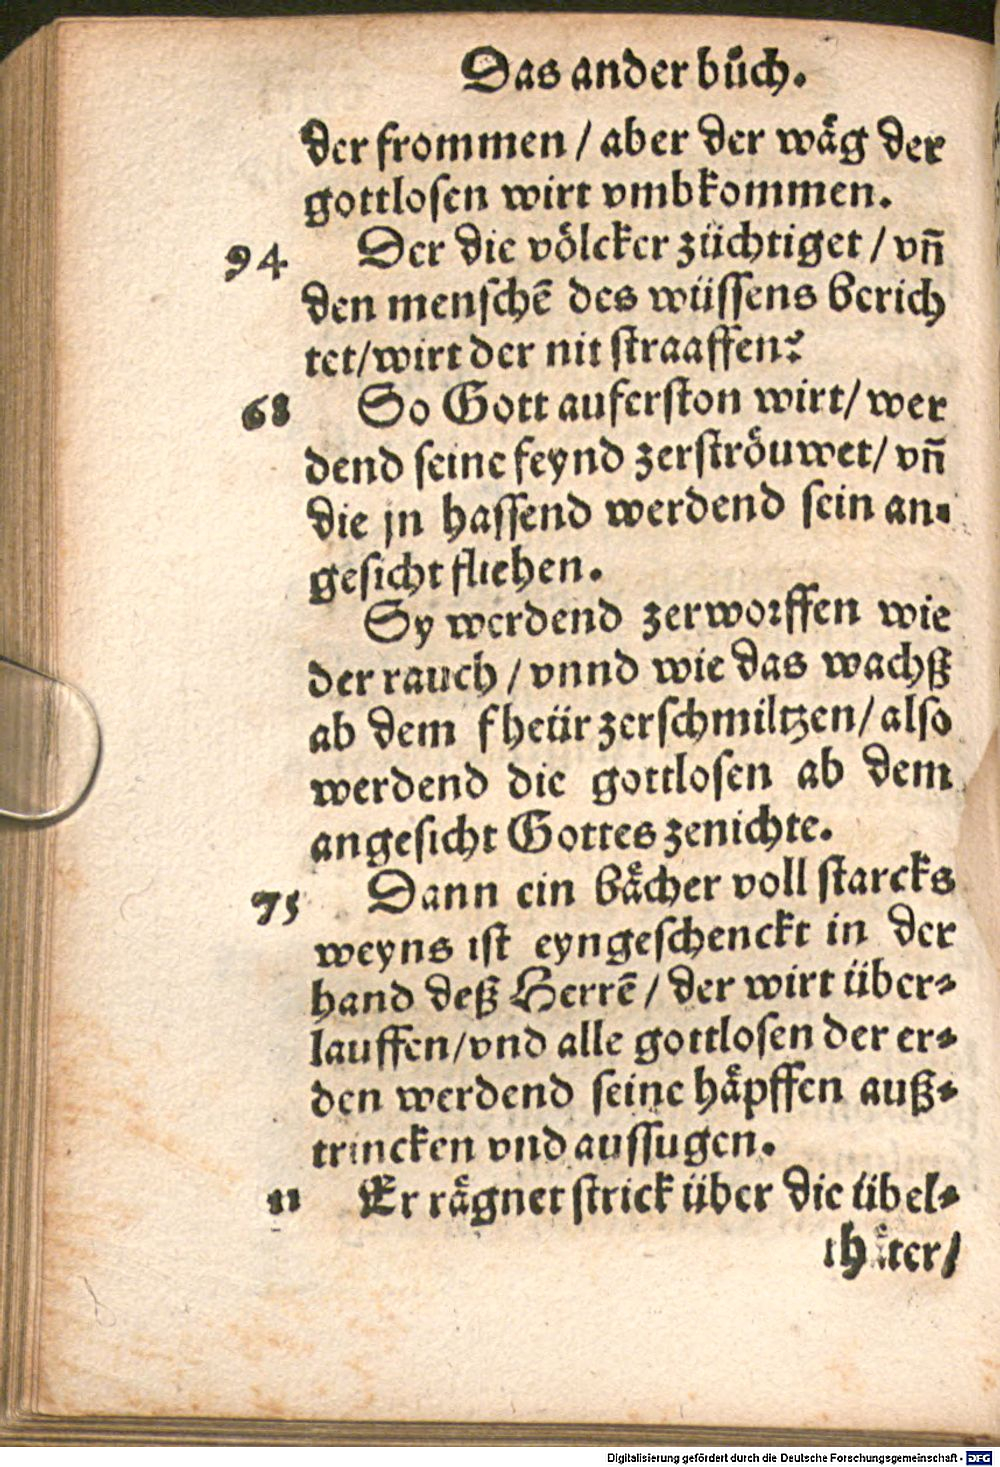 Das ander bůch.
der frommen / aber der wäg der
gottlosen wirt vmbkommen.
94 Der die völcker züchtiget / vñ
den menschẽ des wüssens berich
tet/wirt der nit straaffen?
68 So Gott auferston wirt/ wer
dend seine feynd zerströuwet/ vñ
die jn hassend werdend sein an-
gesicht fliehen.
Sy werdend zerworffen wie
der rauch / vnnd wie das wachß
ab dem fheür zerschmiltzen/ also
werdend die gottlosen ab dem
angesicht Gottes zenichte.
75 Dann ein bächer voll starcks
weyns ist eyngeschenckt in der
hand deß Herrẽ / der wirt über-
lauffen/vnd alle gottlosen der er-
den werdend seine häpffen auß-
trincken vnd aussugen.
11 Er rägnet strick über die übel-
thäter/
Digitalisierung gefördert durch die Deutsche Forschungsgemeinschaft - DFG